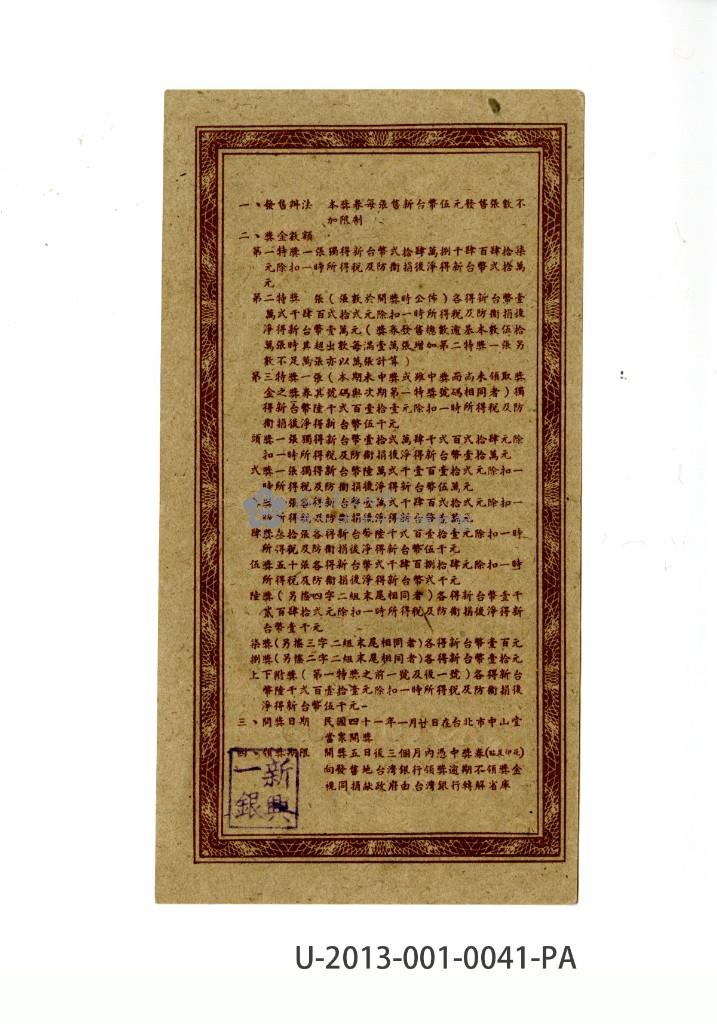 一、發售辦法　本獎券每張售新台幣伍元發售張數不
加限制
二、獎金數額
第一特獎一張獨得新台幣弍拾肆萬捌千肆百肆拾柒
元除扣一時所得稅及防衛捐後淨得新台幣弍拾萬
元
第二特獎　張(張數於開獎時公佈)各得新台幣壹
萬弍千肆百弍拾弍元除扣一時所得稅及防衛捐後
淨得新台幣壹萬元(獎券發售總數逾基本數伍拾
萬張時其超出數每滿壹萬張增加第二特獎一張另
數不足萬張亦以萬張計算)
第三特獎一張(本期未中獎或雖中獎而尚未領取獎
金之獎券其號碼與次期第一特獎號碼相同者)獨
得新台幣陸千弍百壹拾壹元除扣一時所得稅及防
衛捐後淨得新台幣伍千元
頭獎一張獨得新台幣壹拾弍萬肆千弍百弍拾肆元除
扣一時所得稅及防衛捐後淨得新台幣壹拾萬元
弍獎一張獨得新台幣陸萬弍千壹百壹拾弍元除扣一
時所得稅及防衛捐後淨得新台幣伍萬元
獎　張各得新台幣壹萬弍千肆百弍拾弍元除扣一
時所得稅及防衛捐後淨得新台幣壹萬元
肆獎叁拾張各得新台幣陸千弍百壹拾壹元除扣一時
所得稅及防衛捐後淨得新台幣伍千元
伍獎五十張各得新台幣弍千肆百捌拾肆元除扣一時
所得稅及防衛捐後淨得新台幣弍千元
陸獎(另搖四字二組末尾相同者)各得新台幣壹千
貳百肆拾弍元除扣一時所得稅及防衛捐後淨得新
台幣壹千元
柒獎(另搖三字二組末尾相同者)各得新台幣壹百元
捌獎(另搖二字二組末尾相同者)各得新台幣壹拾元
上下附獎(第一特獎之前一號及後一號)各得新台
幣陸千弍百壹拾壹元除扣一時所得稅及防衛捐後
淨得新台幣伍千元
三、開獎日期　民國四十一年一月廿日在台北市中山堂
當衆開獎
四、領獎期限　開獎五日後三個月內憑中獎券(貼足印花)
向發售地台灣銀行領獎逾期不領獎金
視同捐献政府由台灣銀行轉解省庫
新興
一銀
U-2013-001-0041-PA